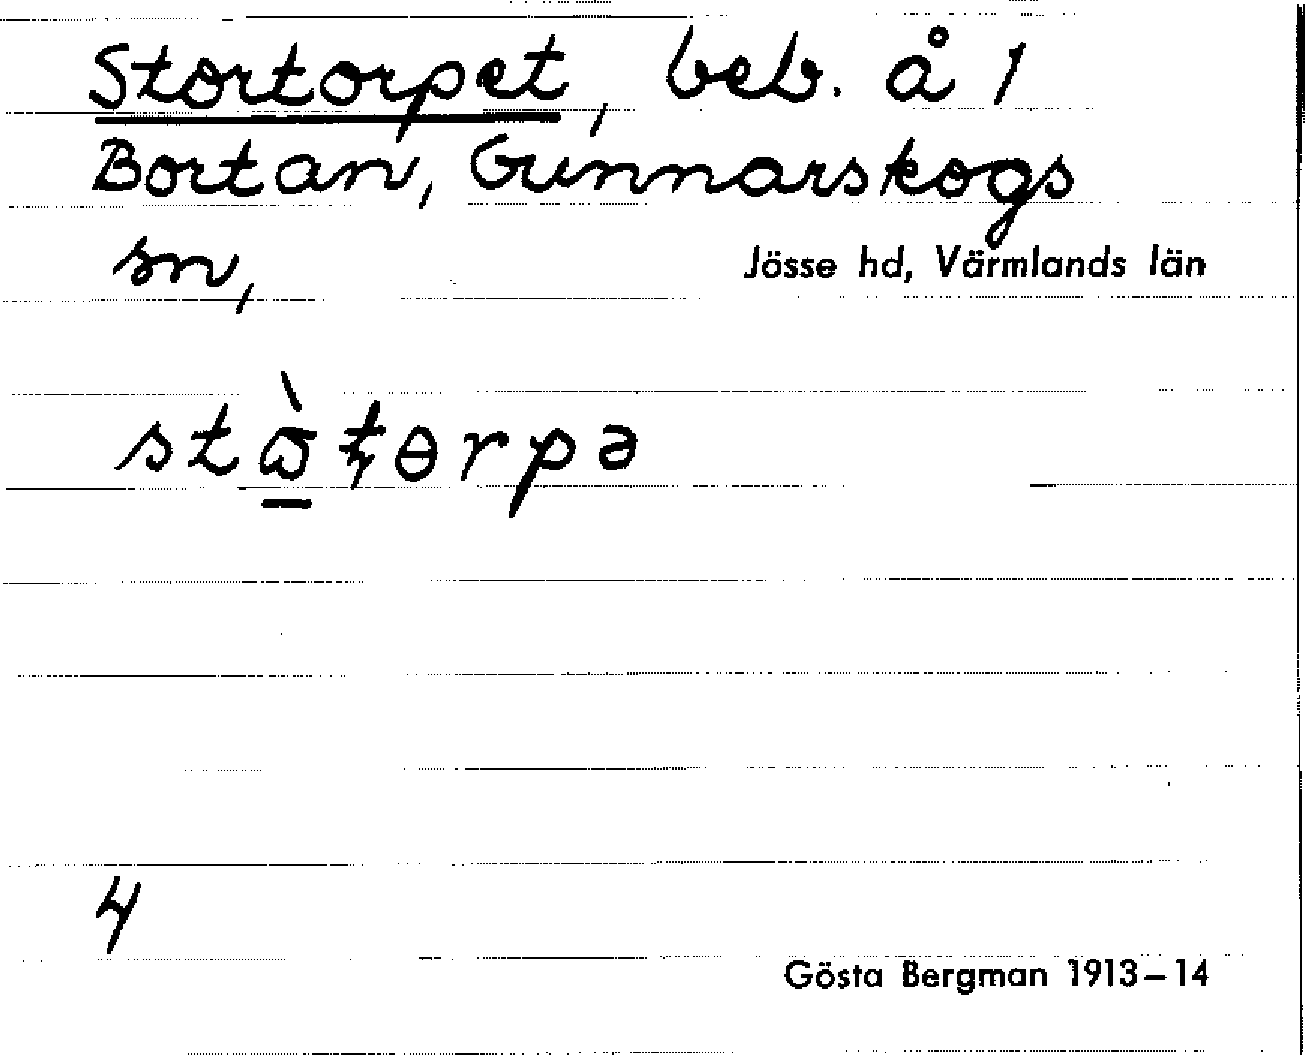 Stortorpet, beb. å 1
Bortan, Gunnarskogs
sn, Jösse hd, Värmlands län
stɷ̀ʈɵrpə
4
Gösta Bergman 1913–14